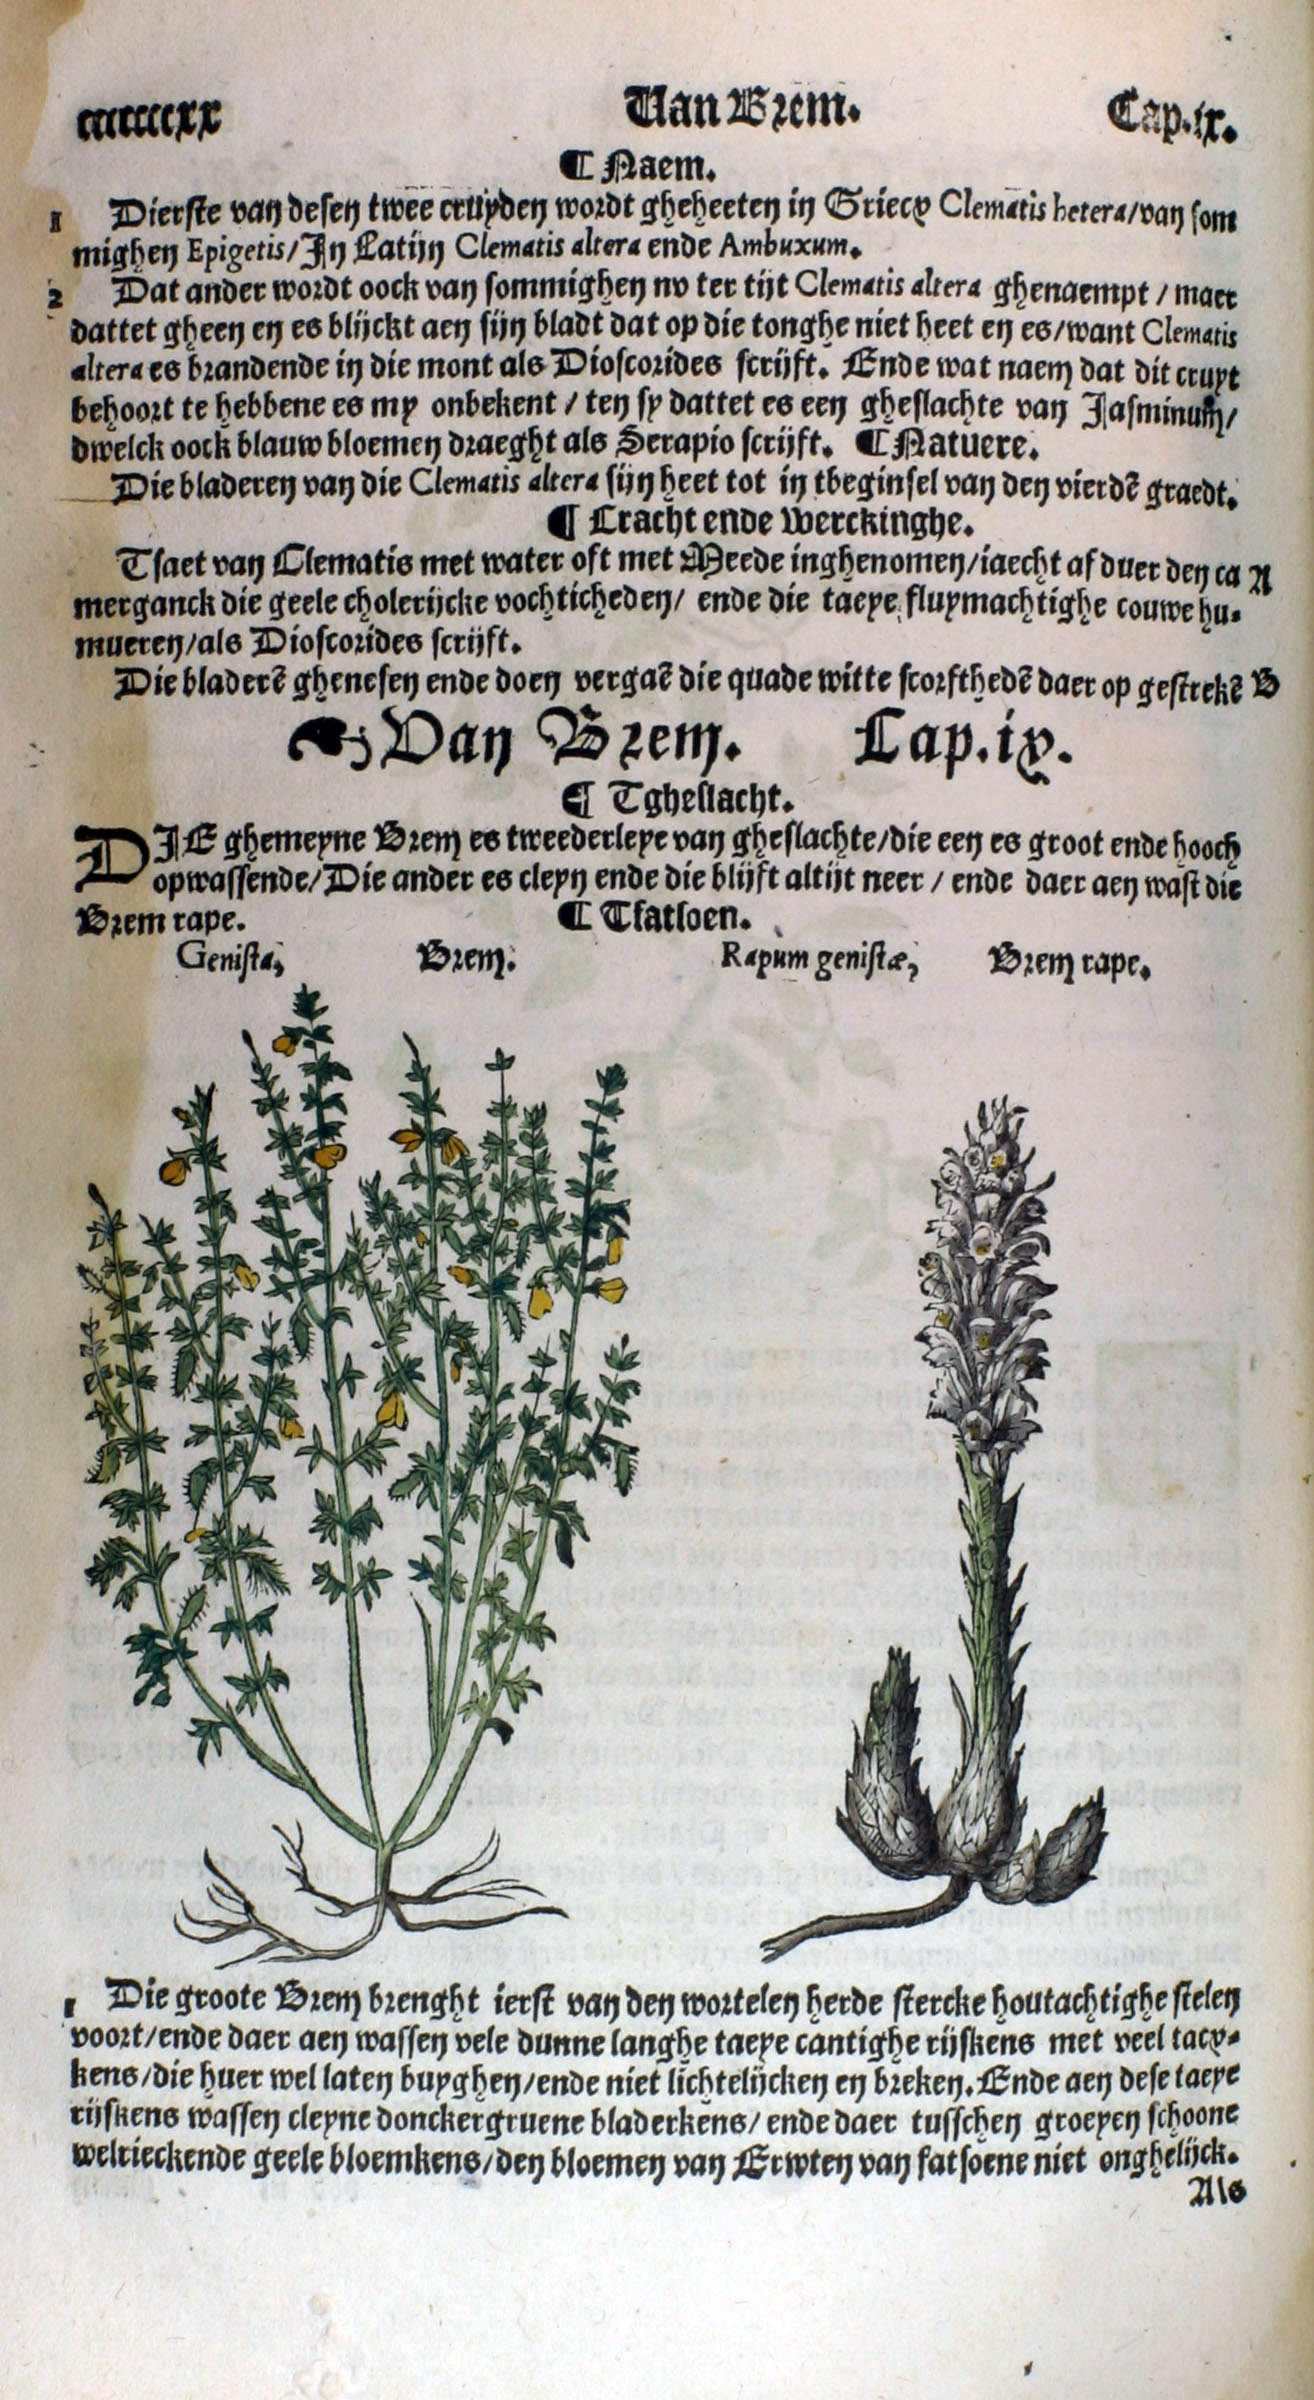 ccccccxx Van Brem. Cap.ix.
¶ Naem.
1 Dierste van desen twee cruyden wordt gheheeten in Griecx Clematis hetera/van som
mighen Epigetis/In Latijn Clematis altera ende Ambuxum.
2 Dat ander wordt oock van sommighen nv ter tijt Clematis altera ghenaempt / maer
dattet gheen en es blijckt aen sijn bladt dat op die tonghe niet heet en es/want Clematis
altera es brandende in die mont als Dioscorides scrijft. Ende wat naem dat dit cruyt
behoort te hebbene es my onbekent / ten sy dattet es een gheslachte van Jasminum/
dwelck oock blauw bloemen draeght als Serapio scrijft. ¶ Natuere.
Die bladeren van die Clematis altera sijn heet tot in tbeginsel van den vierdē graedt.
¶ Cracht ende Werckinghe.
Tsaet van Clematis met water oft met Meede inghenomen/iaecht af duer den ca A
merganck die geele cholerijcke vochticheden/ ende die taeye fluymachtighe couwe hu-
mueren/als Dioscorides scrijft.
Die bladerē ghenesen ende doen vergaē die quade witte scorfthedē daer op gestrekē B
Van Brem. Cap.ix.
¶ Tgheslacht.
DIE ghemeyne Brem es tweederleye van gheslachte/die een es groot ende hooch
opwassende/Die ander es cleyn ende die blijft altijt neer / ende daer aen wast die
Brem rape. ¶ Tfatsoen.
Genista, Brem. Rapum genistæ, Brem rape.
1 Die groote Brem brenght ierst van den wortelen herde stercke houtachtighe stelen
voort/ende daer aen wassen vele dunne langhe taeye cantighe rijskens met veel tacx-
kens/die huer wel laten buyghen/ende niet lichtelijcken en breken. Ende aen dese taeye
rijskens wassen cleyne donckergruene bladerkens/ ende daer tusschen groeyen schoone
welrieckende geele bloemkens/den bloemen van Erwten van fatsoene niet onghelijck.
Als